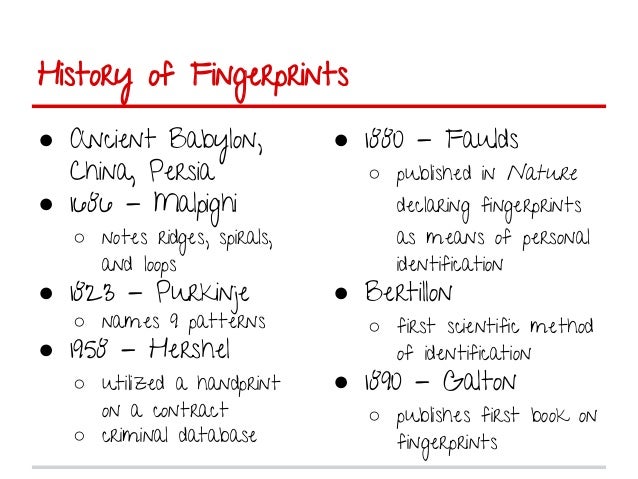 History of Fingerprints
● Ancient Babylon,
China, Persia
● 1686 – Malpighi
○ notes ridges, spirals,
and loops
● 1823 – Purkinje
○ names 9 patterns
● 1958 – Hershel
○ utilized a handprint
on a contract
○ criminal database
● 1880 – Faulds
○ published in Nature
declaring fingerprints
as means of personal
identification
● Bertillon
○ first scientific method
of identification
● 1890 – Galton
○ publishes first book on
fingerprints